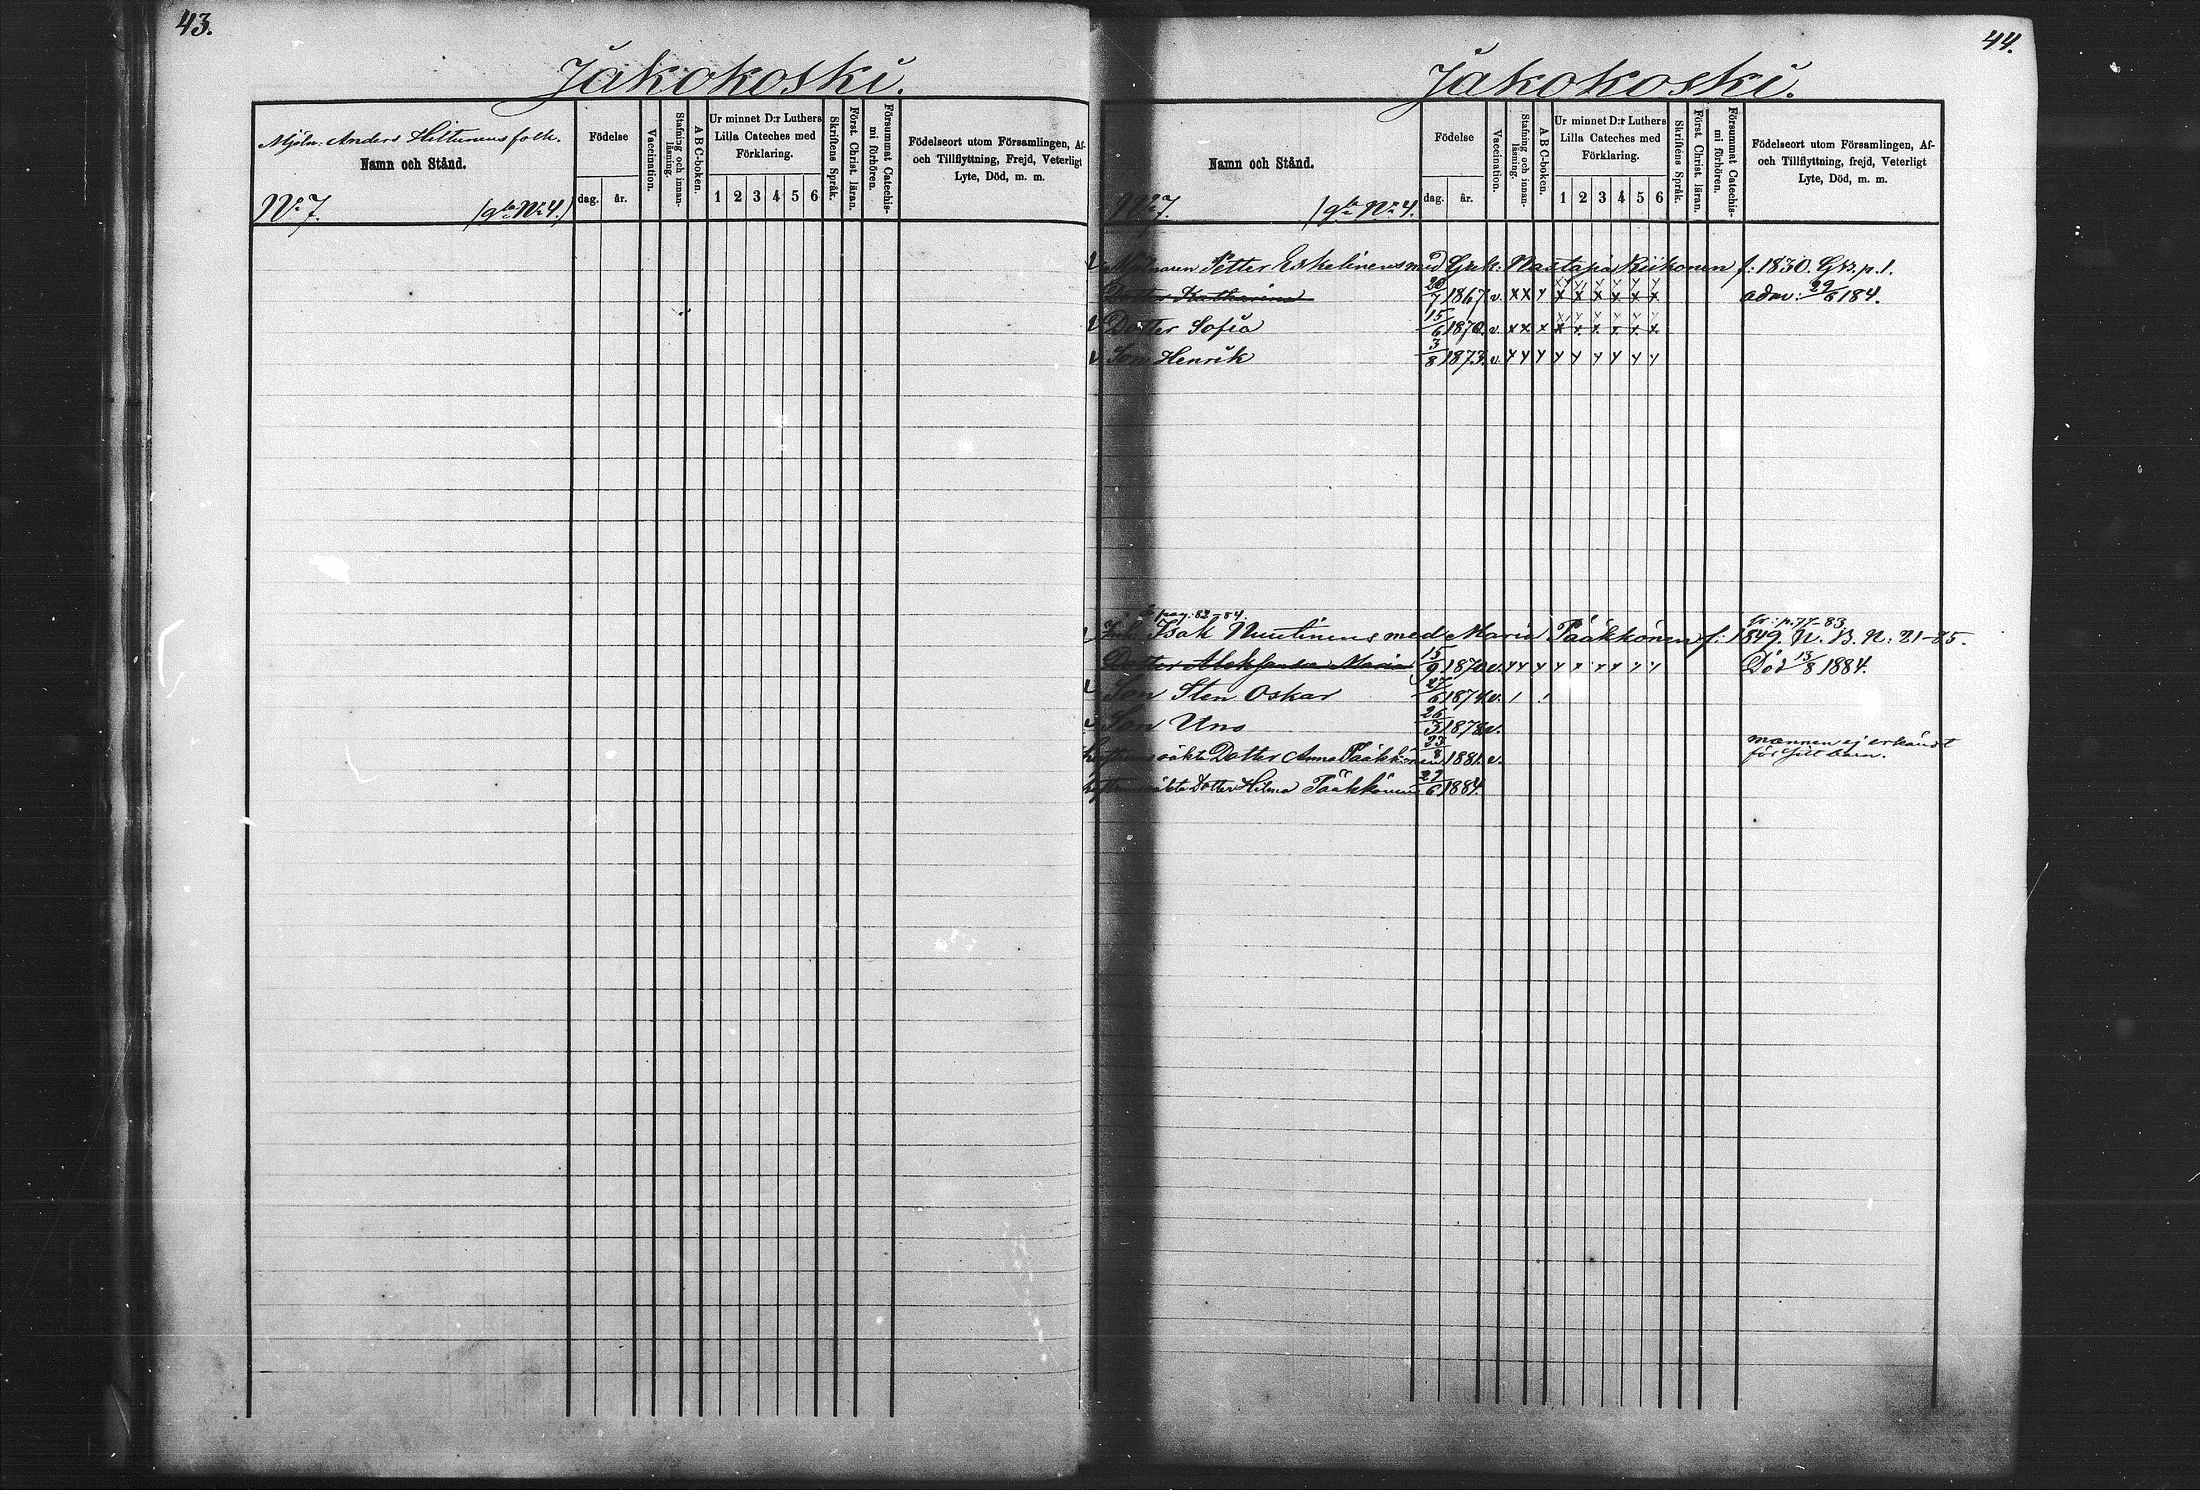 43.
Jakokoski.
Mjöln. Anders Hiltunens folk.
Namn och Stånd.
No 7. /gla No 4./
Födelse
dag. år.
Vaccination.
Stafning och innan-läsning.
A B C-boken.
Ur minnet D:r Luthers
Lilla Cateches med
Förklaring.
1 2 3 4 5 6
Skriftens Språk.
Först. Christ. läran.
Försummat Catechis-mi förhören.
Födelseort utom Församlingen, Af-
och Tillflyttning, Frejd, Veterligt
Lyte, Död, m. m.
44.
Jakokoski.
Namn och Stånd.
No 7. /gla No 4.
Födelse
dag. år.
Vaccination.
Stafning och innan-läsning.
A B C-boken.
Ur minnet D:r Luthers
Lilla Cateches med
Förklaring.
1 2 3 4 5 6
Skriftens Språk.
Först. Christ. läran.
Försummat Catechis-mi förhören.
Födelseort utom Församlingen, Af-
och Tillflyttning, frejd, Veterligt
Lyte, Död, m. m.
Mjölnaren Petter Eskelinens med Grek. Nastasia Riikonen f: 1830. Grk. p. 1.
Dotter Katharina 20/7 1867 v. x x y x x x x x x adm: 29/6 184.
Dotter Sofia 15/6 1870 v. x x x x x x x x x
Son Henrik 3/8 1873. v. y y y y y y y y y
pag. 82-84. p. 77-83
Inh. Isak Nuutinens med Maria Pääkkönen f: 1849. N. B. N: 21-85.
Dotter Aleksandra Maria 15/9 1870 v. y y y y x y y y y Död 13/8 1884.
Son Sten Oskar 27/6 1874 v. / !
Son Uno 26/3 1878 v.
oäkta Dotter Anna Pääkkönen 23/8 1881 v. mannen ej erkändt
för sitt barn.
oäkta Dotter Hilma Pääkkönen 27/6 1884.